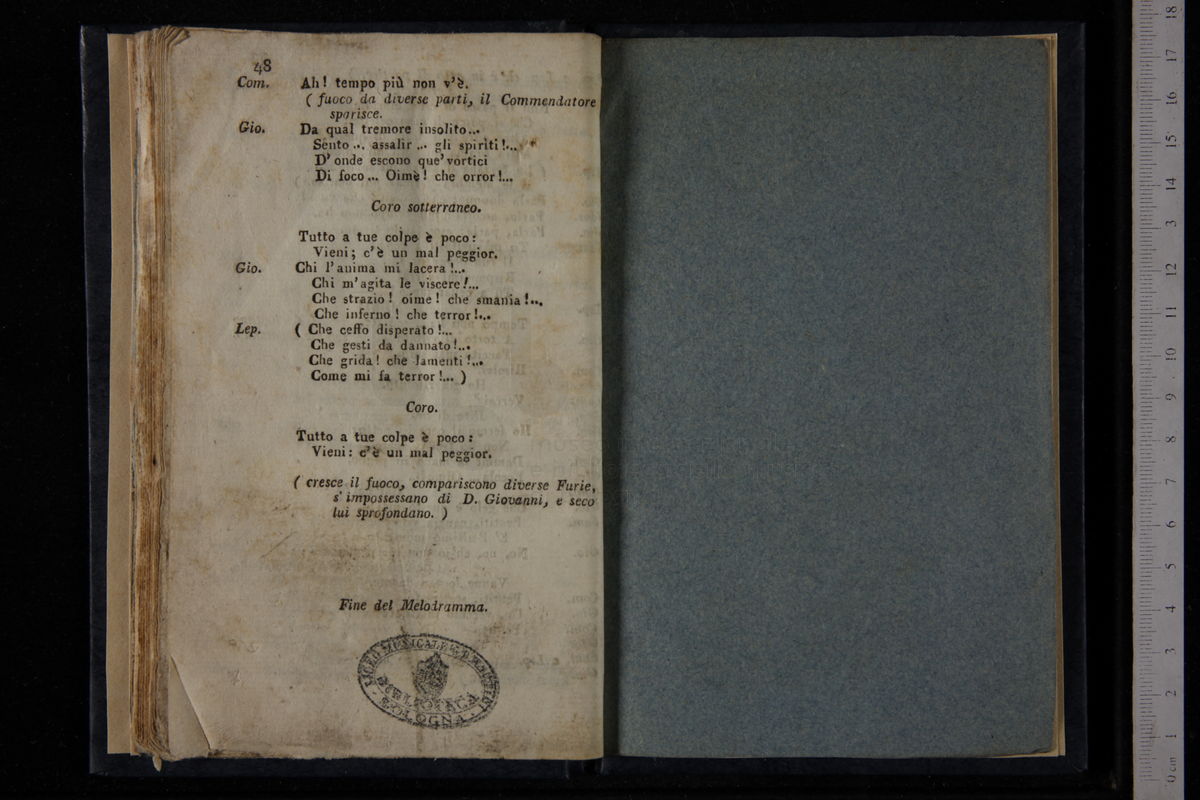 48
Com. Ah! tempo più non v'è.
( fuoco da diverse parti, il Commendatore
sparisce.
Gio. Da qual tremore insolito...
Sento ... assalir ... gli spiriti!...
D'onde escono que' vortici
Di foco... Oimè! che orror!...
Coro sotterraneo.
Tutto a tue colpe è poco:
Vieni; c'è un mal peggior.
Gio. Chi l'anima mi lacera!...
Chi m'agita le viscere!...
Che strazio! oime! che smania!...
Che inferno! che terror!...
Lep. ( Che ceffo disperato!...
Che gesti da dannato!...
Che grida! che lamenti!...
Come mi fa terror!... )
Coro.
Tutto a tue colpe è poco:
Vieni: c'è un mal peggior.
( cresce il fuoco, compariscono diverse Furie,
s'impossessano di D. Giovanni, e seco
lui sprofondano. )
Fine del Melodramma.
LICEO MUSICALE
BIBLIOTECA
BOLOGNA
18
17
16
15
14
3
12
11
10
9
8
7
6
5
4
3
2
1
0 cm